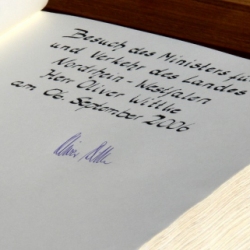 Besuch des Ministers für
und Verkehr des Landes
Nordrhein-Westfalen
Herr Oliver Wittke
am 06. September 2006